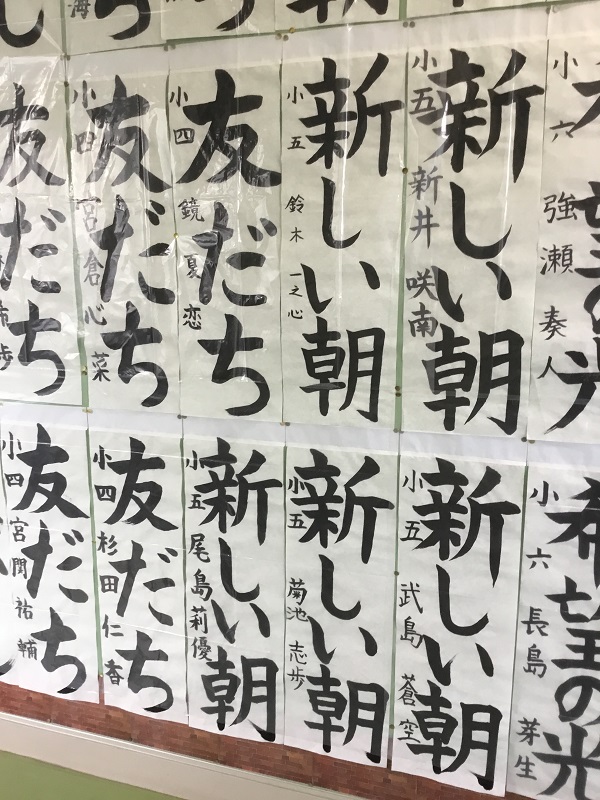 海
友だち
友だち
小四 宮倉 心菜
友だち
小四 鏡 夏恋
新しい朝
小五 鈴木 一之心
新しい朝
小五 新井 咲南
小六 強瀬 奏人
望の光
友だち
小四 宮関 祐輔
友だち
小四 杉田 仁香
新しい朝
小五 尾島 莉優
新しい朝
小五 菊池 志歩
新しい朝
小五 武島 蒼空
希望の光
小六 長島 芽生